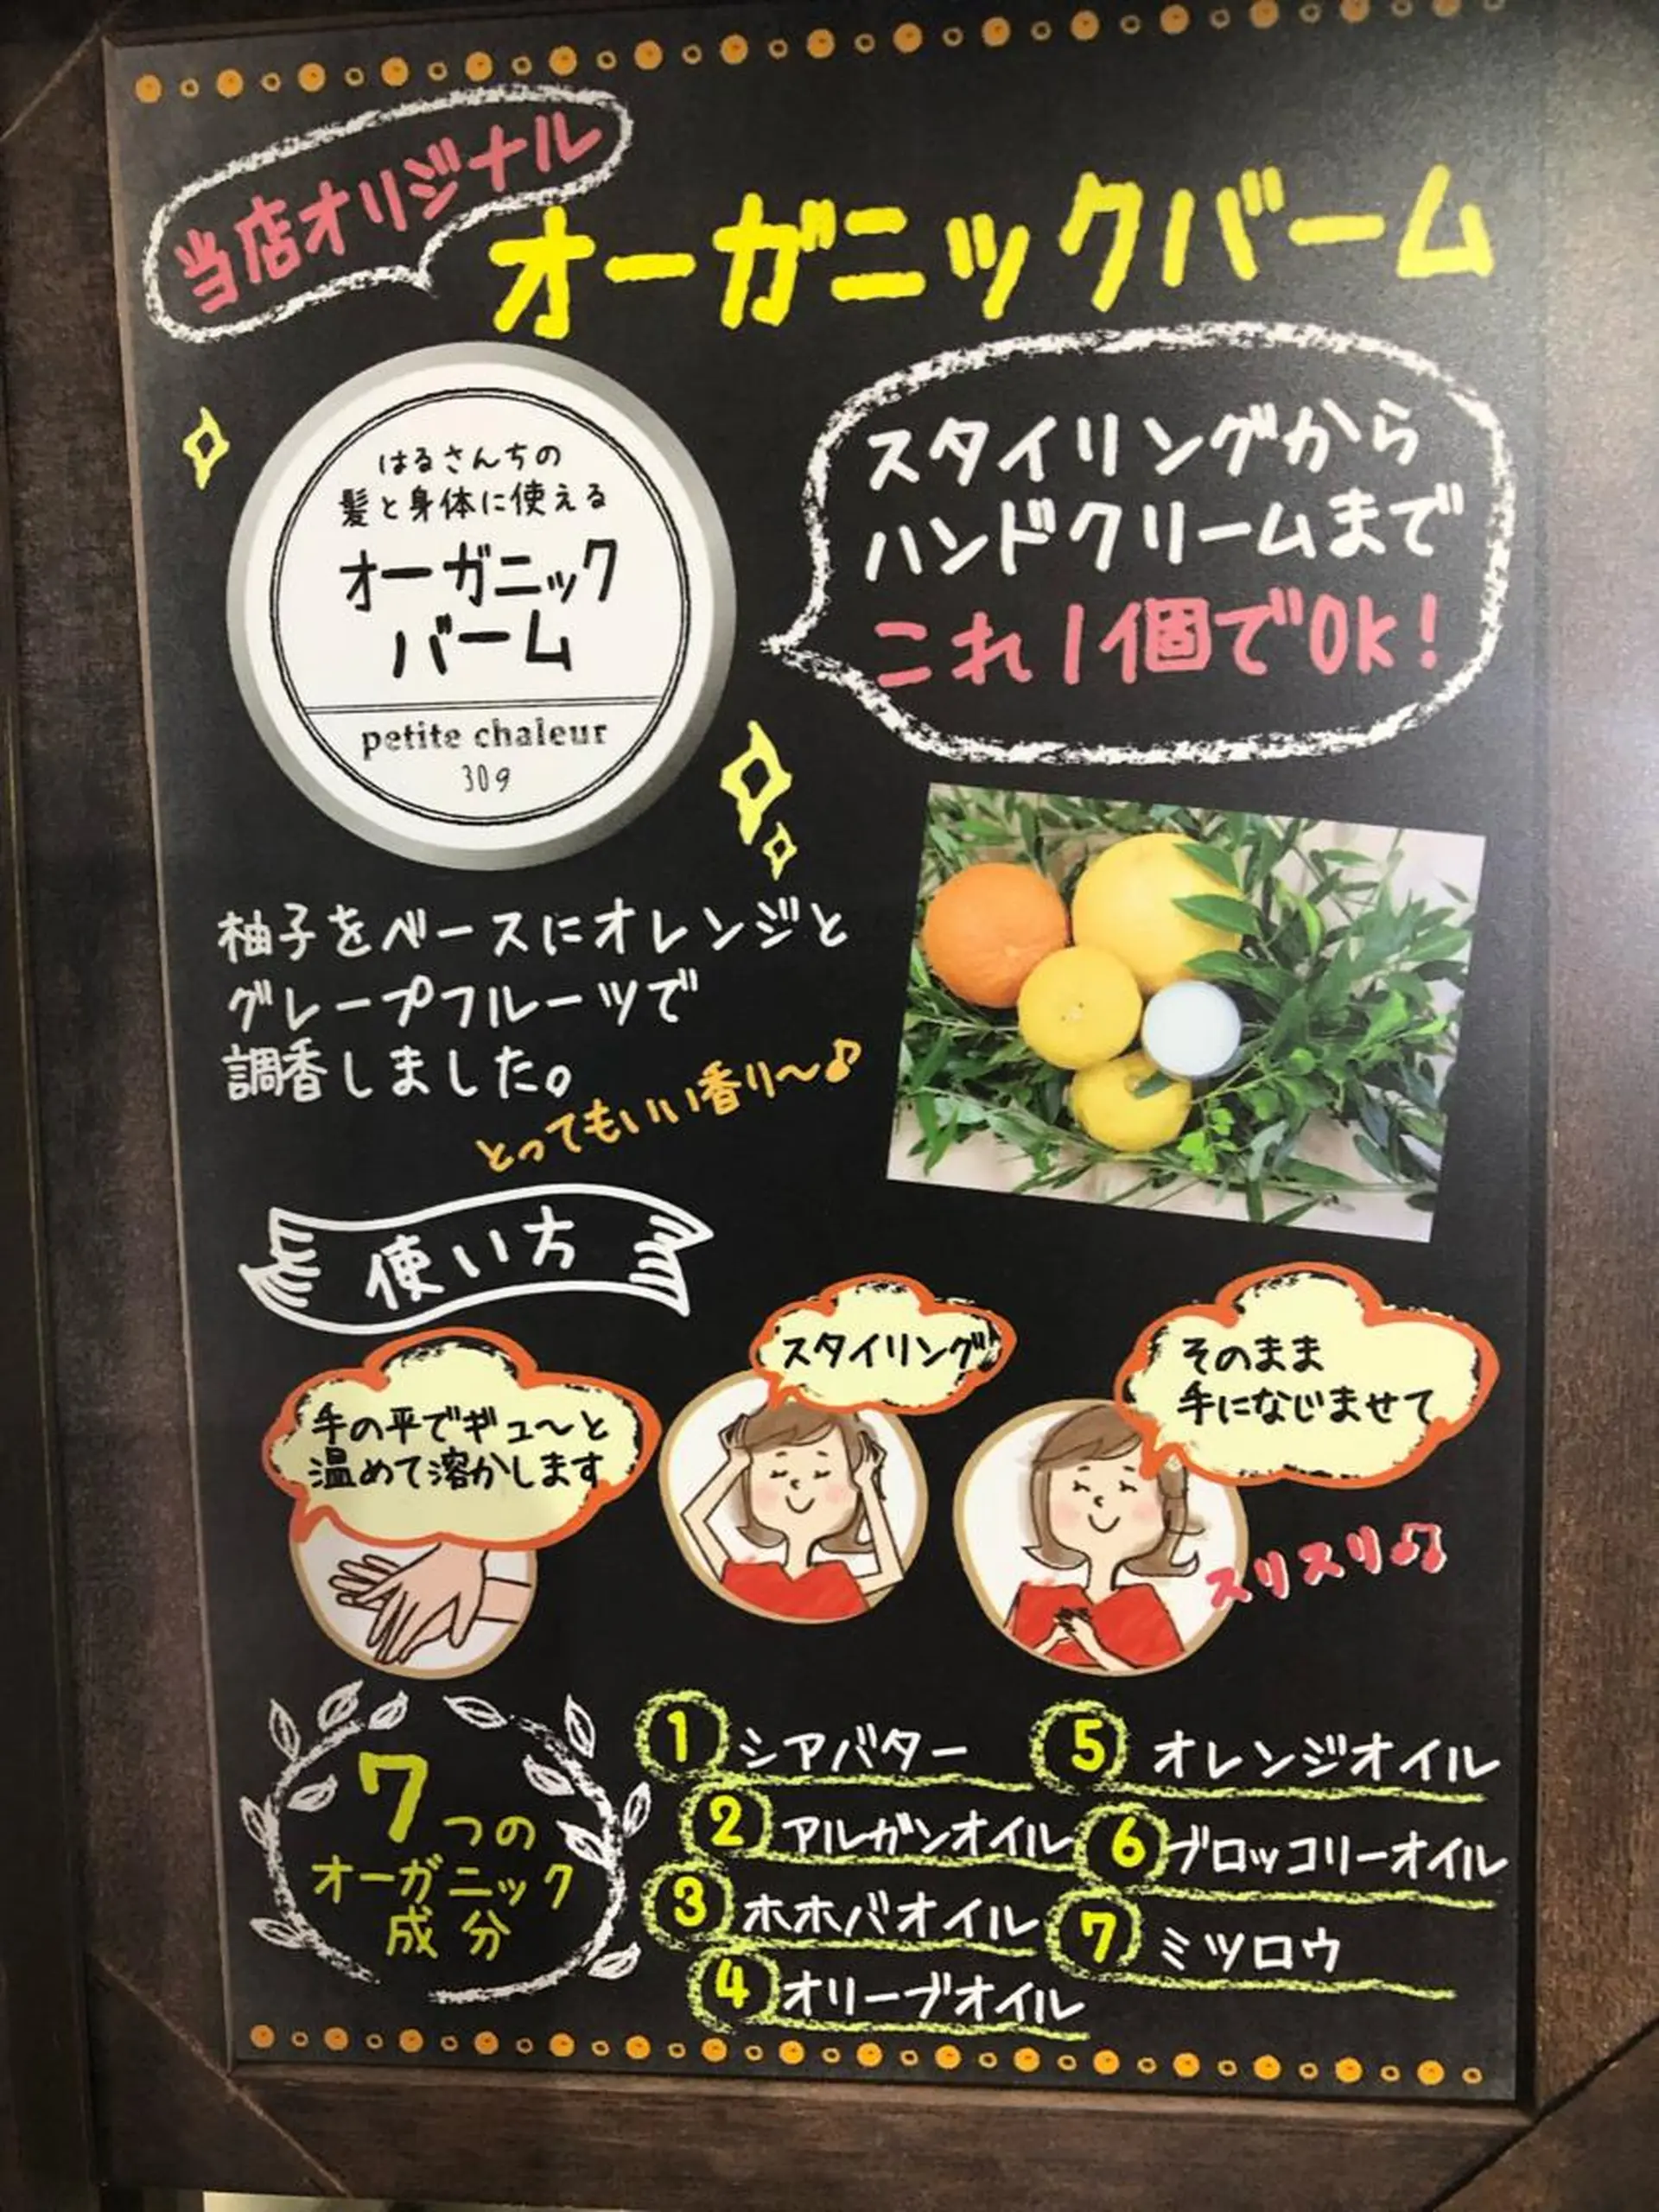 当店オリジナル
オーガニックバーム
はるさんちの
髪と身体に使える
オーガニック
バーム
petite chaleur
30g
スタイリングから
ハンドクリームまで
これ1個でOK!
柚子をベースにオレンジと
グレープフルーツで
調香しました。
とってもいい香り〜♪
使い方
手の平でギュ〜と
温めて溶かします
スタイリング
そのまま
手になじませて
スリスリ♫
7つの
オーガニック
成分
1 シアバター
2 アルガンオイル
3 ホホバオイル
4 オリーブオイル
5 オレンジオイル
6 ブロッコリーオイル
7 ミツロウ